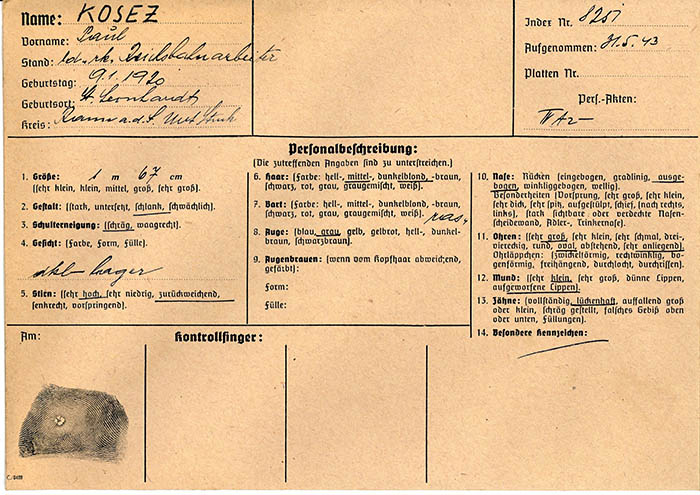 Name: KOSEZ
Vorname: Paul
Stand: led. rk. Reichsbahnarbeiter
Geburtstag: 9.1.1920
Geburtsort: St. Leonhardt
Kreis: Rann a.d. S.
Index Nr. 8251
Aufgenommen: 31.5.43
Platten Nr.
Pers.-Akten:
Personalbeschreibung:
(Die zutreffenden Angaben sind zu unterstreichen.)
1. Größe: 1 m 67 cm
(sehr klein, klein, mittel, groß, sehr groß).
2. Gestalt: (stark, untersetzt, schlank, schwächlich).
3. Schulterneigung: (schräg, waagrecht).
4. Gesicht: (Farbe, Form, Fülle).
hager
5. Stirn: (sehr hoch, sehr niedrig, zurückweichend,
senkrecht, vorspringend).
6. Haar: (Farbe: hell-, mittel-, dunkelblond, -braun,
schwarz, rot, grau, graugemischt, weiß).
7. Bart: (Farbe: hell-, mittel-, dunkelblond, -braun,
schwarz, rot, grau, graugemischt, weiß). ras.
8. Auge: (blau, grau, gelb, gelbrot, hell-, dunkel-
braun, schwarzbraun).
9. Augenbrauen: (wenn vom Kopfhaar abweichend,
gefärbt):
Form:
Fülle:
10. Nase: Rücken (eingebogen, gradlinig, ausge-
bogen, winkliggebogen, wellig).
Besonderheiten (Vorsprung, sehr groß, sehr klein,
sehr dick, sehr spitz, aufgestülpt, schief, (nach rechts,
links), stark sichtbare oder verdeckte Nasen-
scheidewand, Adler-, Trinkernase).
11. Ohren: (sehr groß, sehr klein, sehr schmal, drei-,
viereckig, rund, oval, abstehend, sehr anliegend).
Ohrläppchen: (zwickelförmig, rechtwinklig, bo-
genförmig, freihängend, durchlocht, durchrissen).
12. Mund: (sehr klein, sehr groß, dünne Lippen,
aufgeworfene Lippen).
13. Zähne: (vollständig, lückenhaft, auffallend groß
oder klein, schräg gestellt, falsches Gebiß oben
oder unten, Füllungen).
14. Besondere Kennzeichen:
Am:
Kontrollfinger: